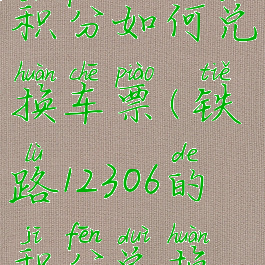 积分如何兑
huàn chē piào tiě
换车票(铁
lù de
路12306的
jī fēn duì huàn
积分兑换